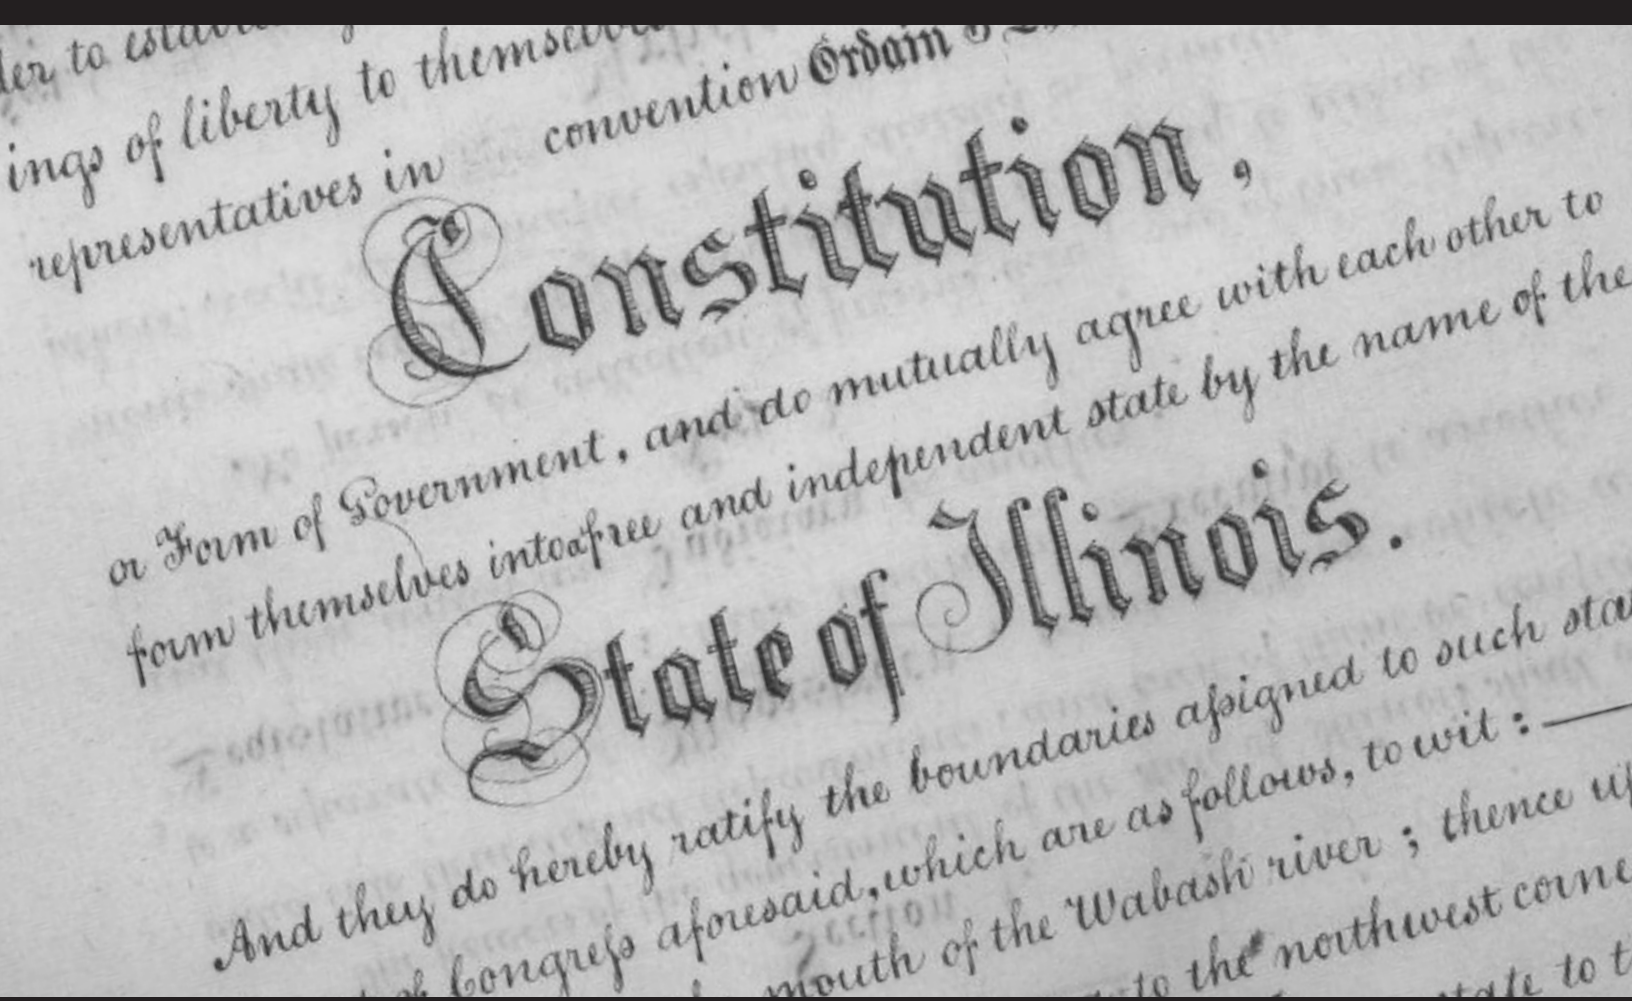 to
ings of liberty to themselves
representatives in convention Ordain
Constitution,
or Form of Government, and do mutually agree with each other to
form themselves into a free and independent state by the name of the
State of Illinois.
And they do hereby ratify the boundaries aſsigned to such
of Congreſs aforesaid, which are as follows, to wit :
mouth of the Wabash river ; thence
to the northwest
state to